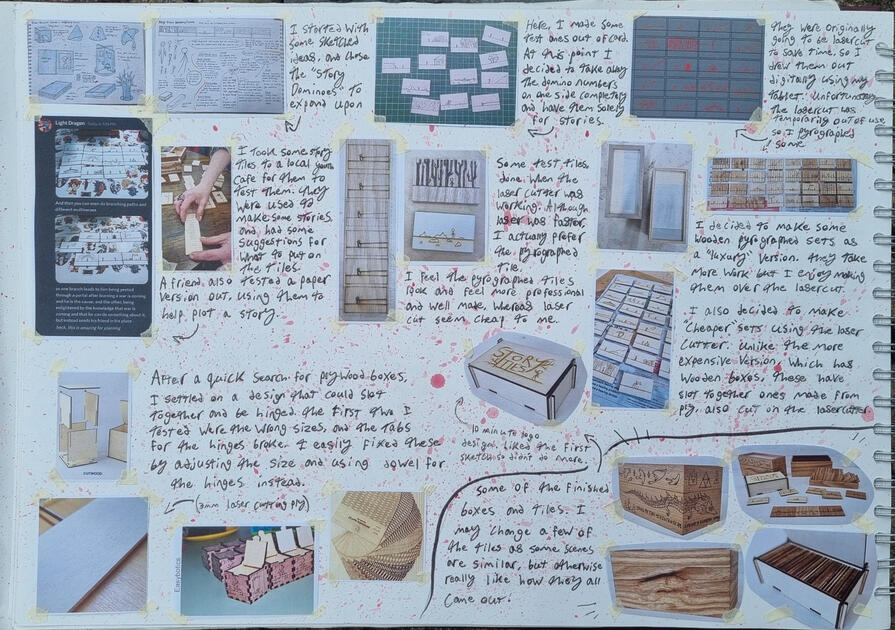 I started with
some sketched
ideas, and chose
the "Story
Dominoes" to
expand upon
Here, I made some
test ones out of card.
At this point I
decided to take away
the domino numbers
on one side completely
and have them solely
for stories.
They were originally
going to be lasercut
to save time, so I
drew them out
digitally using my
tablet. Unfortunately
the lasercut was
temporarily out of use
so I pyrographed
some.
Light Dragon
And then you can even do branching paths and
different multiverses
so one branch leads to him being yeeted
through a portal after learning a war is coming
and he is the cause, and the other, being
enlightened by the knowledge that war is
coming and that he can do something about it,
but instead sends his friend in his place
back, this is amazing for planning
I took some story
tiles to a local youth
cafe for them to
test them. They
were used to
make some stories,
and had some
suggestions for
what to put on
the tiles.
A friend also tested a paper
version out, using them to
help plot a story.
Some test tiles
done when the
laser cutter was
working. Although
laser was faster,
I actually prefer
the pyrographed
tile.
I feel the pyrographed tiles
look and feel more professional
and well made, whereas laser
cut seem cheap to me.
I decided to make some
wooden pyrographed sets as
a "luxury" version. They take
more work but I enjoy making
them over the lasercut.
I also decided to make
"cheaper" sets using the laser
cutter. Unlike the more
expensive version, which has
wooden boxes, these have
slot together ones made from
ply, also cut on the lasercutter.
After a quick search for plywood boxes,
I settled on a design that could slot
together and be hinged. The first two I
tested were the wrong sizes, and the tabs
for the hinges broke. I easily fixed these
by adjusting the size and using dowel for
the hinges instead.
CUTWOOD
(3mm laser cutting ply)
Easybotics
STORY
TILES
10 minute logo
design. Liked the first
sketch so didn't do more.
Some of the finished
boxes and tiles. I
may change a few of
the tiles as some scenes
are similar, but otherwise
really like how they all
came out!